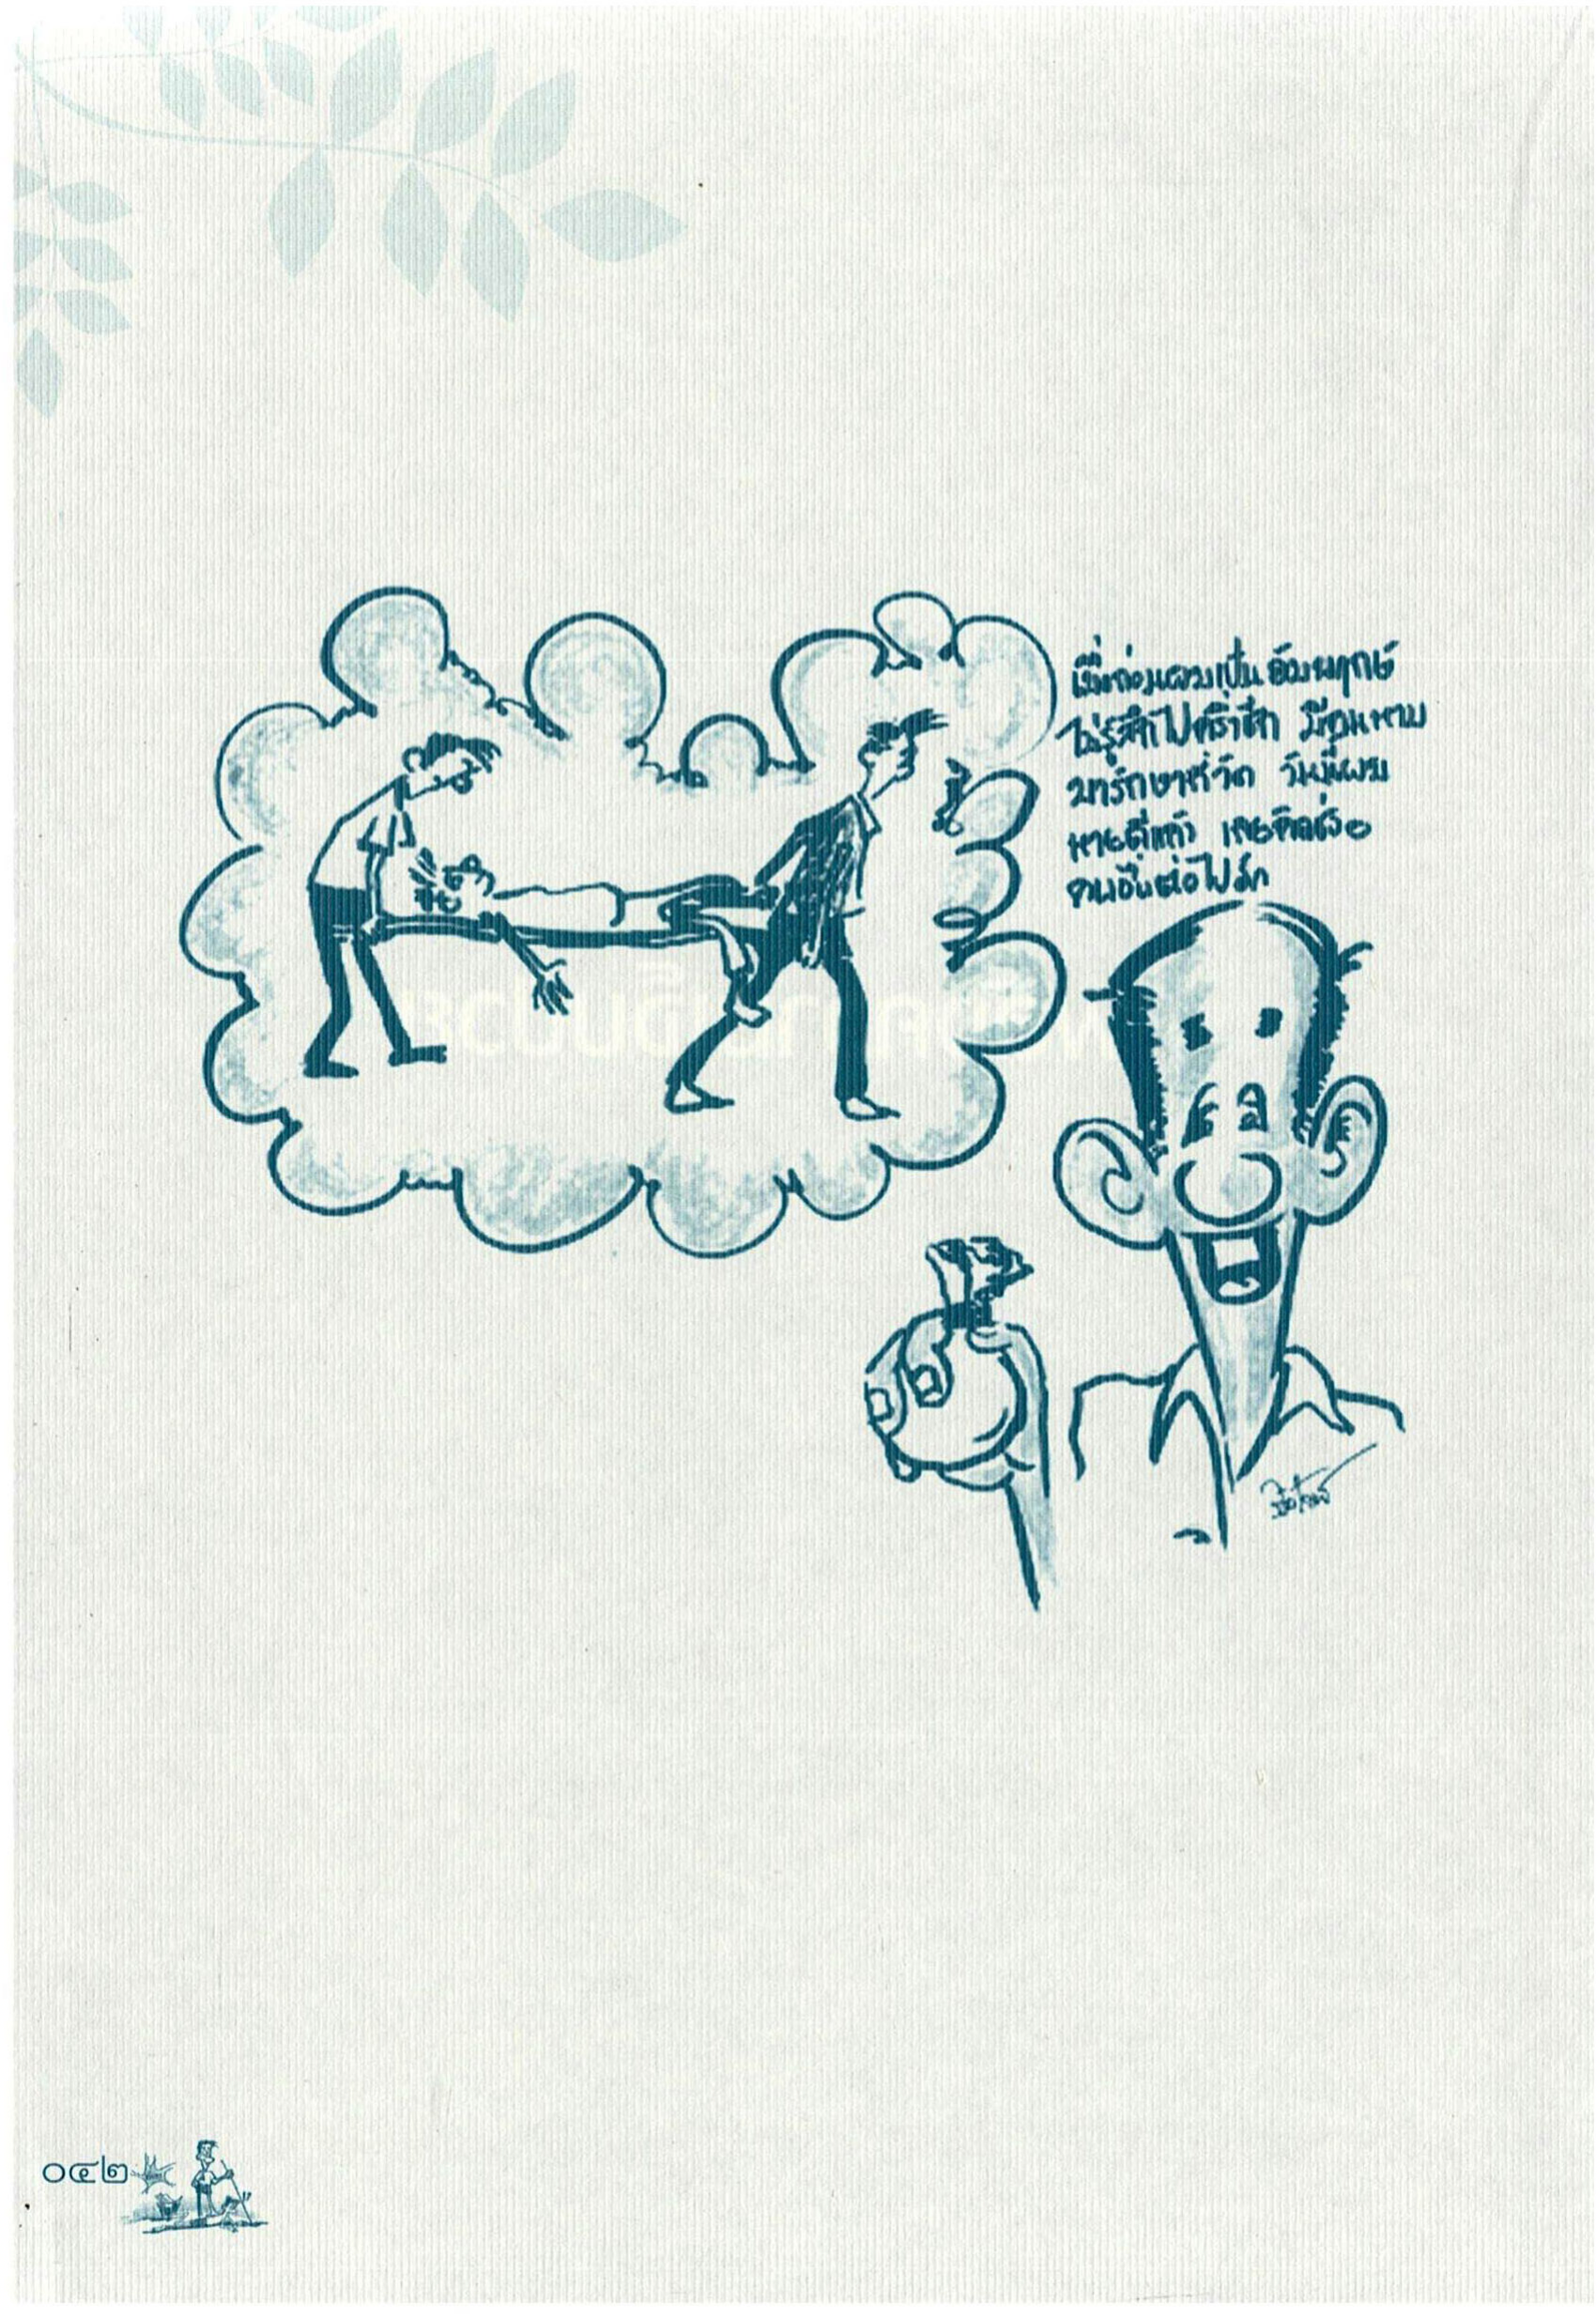 เมื่อก่อนผมเป็นอัมพฤกษ์
ไม่รู้สึกไปครึ่งซีก มีคนหาม
มารักษาที่วัด วันนี้ผม
หายดีแล้ว เลยคิดช่วย
คนอื่นต่อไปอีก
๐๔๒